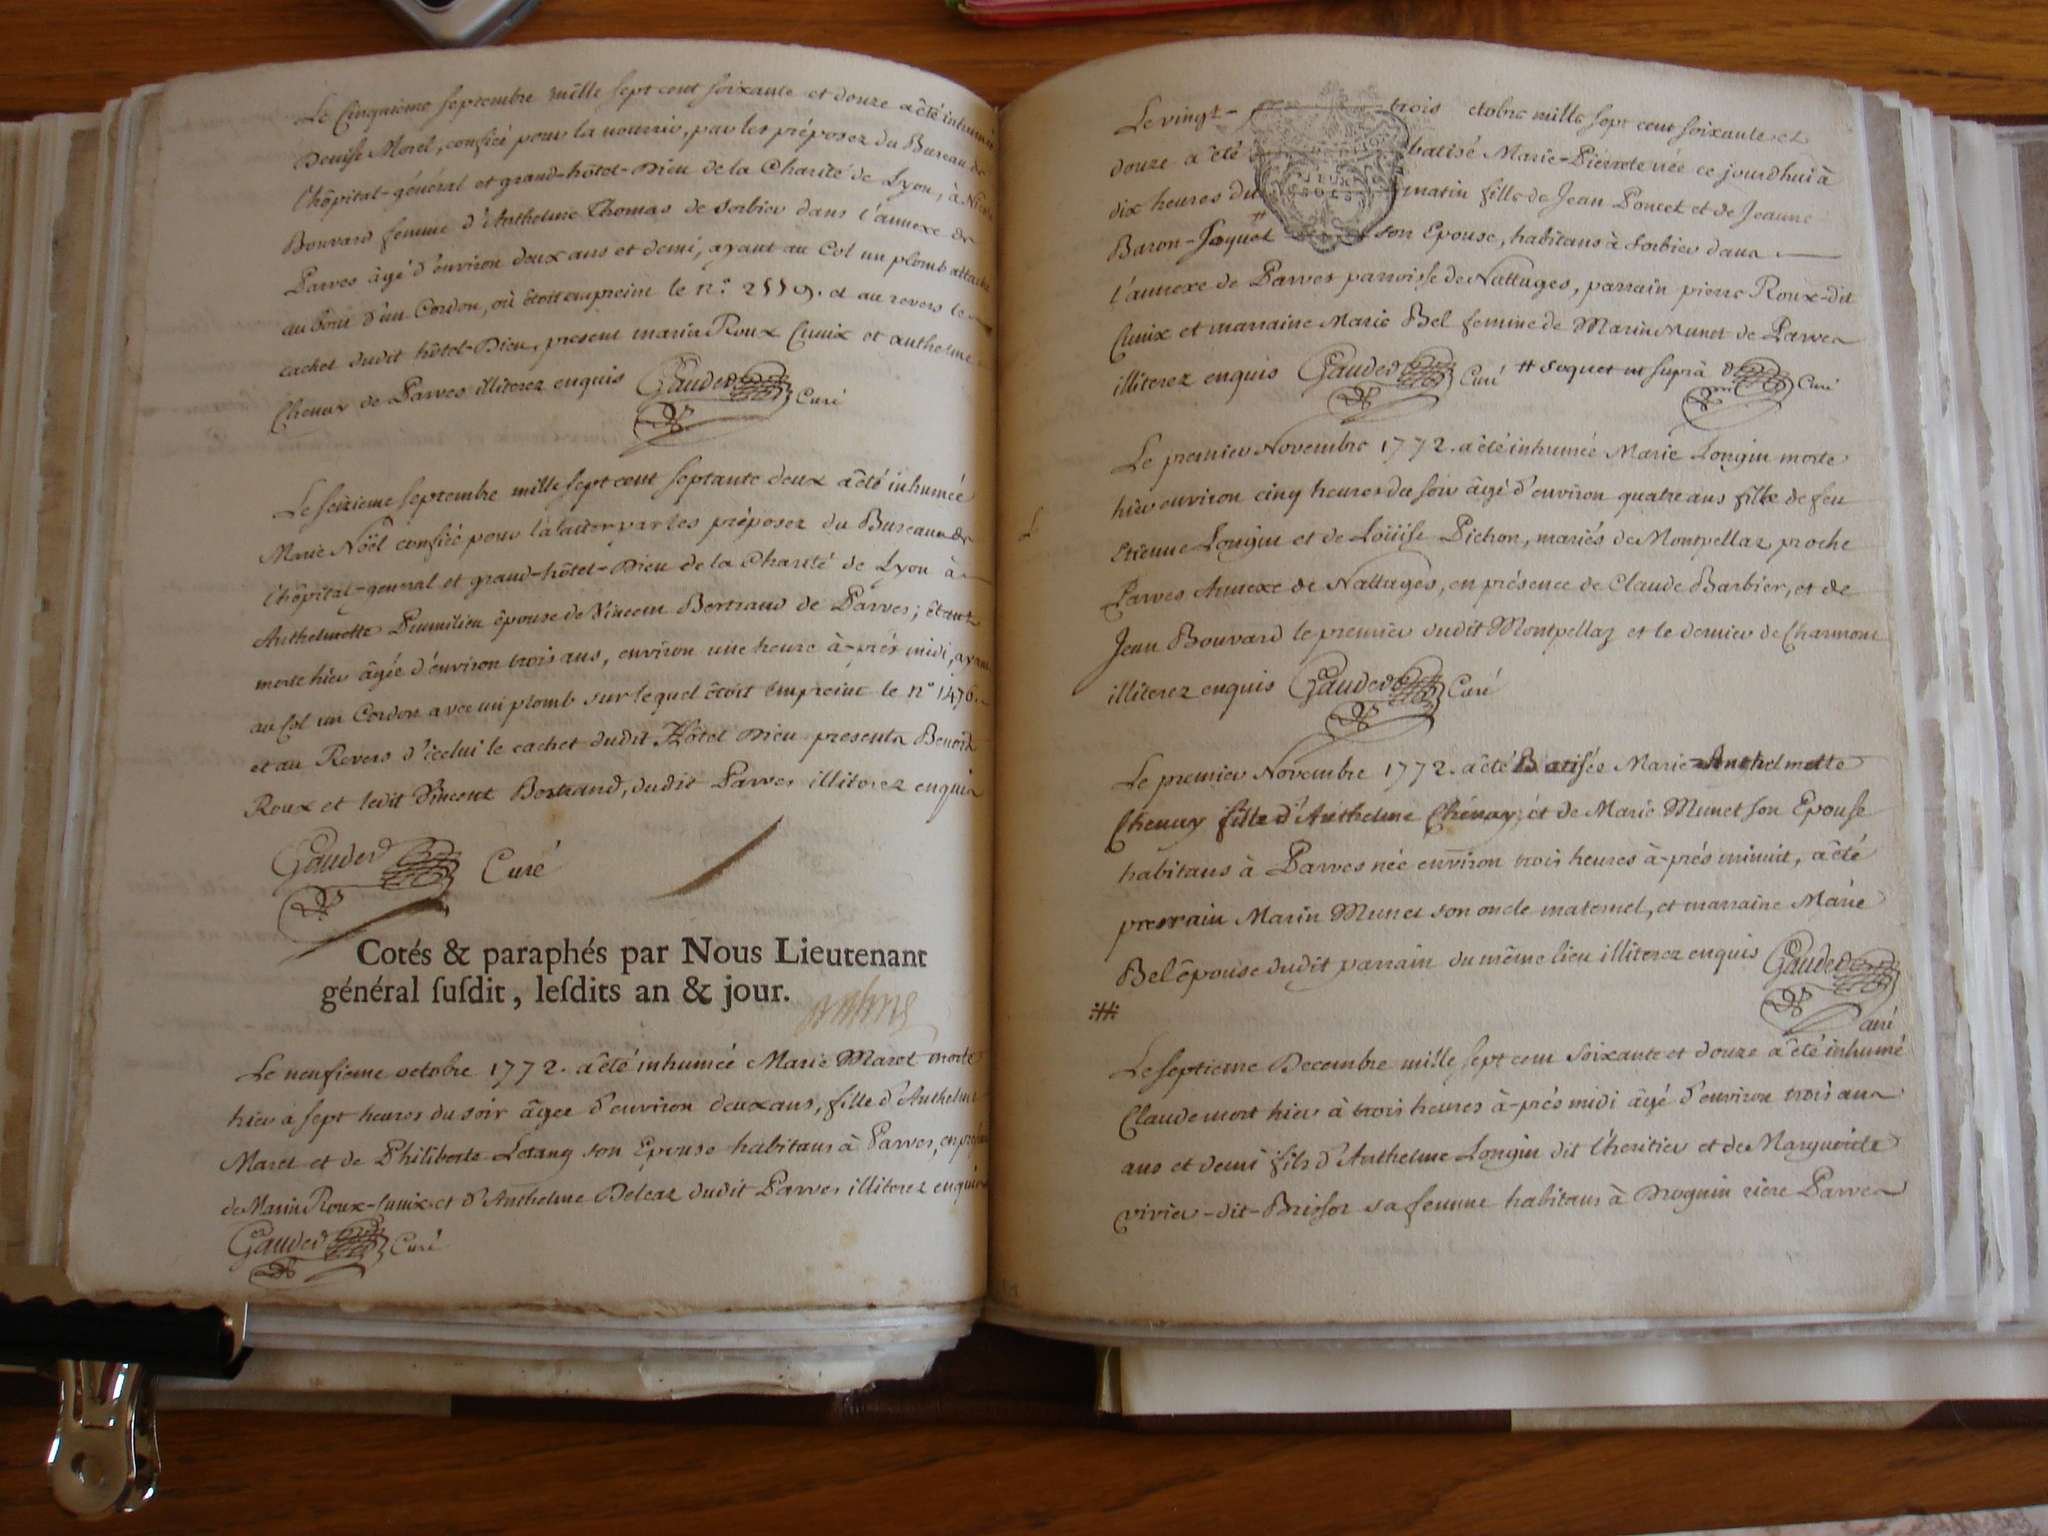 Le Cinquieme septembre mille sept cent soixante et douze a été inhumée
Denise Morel, confiée pour la nourrir, par les préposez du Bureau de
l'hôpital-général et grand-hôtel-Dieu de la Charité de Lyon, à
Bouvard femme d'Anthelme Thomas de Sorbier dans l'annexe de
Parves âgé d'environ deux ans et demi, ayant au Col un plomb attaché
au bout d'un Cordon, où étoit empreint le n.° 2559. et au revers le
cachet dudit hôtel-Dieu, present marin Roux Cunix et anthelme
Chenay de Parves illiterez enquis Gauder Curé
Le seizieme septembre mille sept cent septante deux a été inhumée
Marie Noël confiée pour l'alaiter par les préposez du Bureau de
l'hôpital-general et grand-hôtel-Dieu de la Charité de Lyon à
Anthelmette Pumilieu épouse de Vincent Bertrand de Parves; étant
morte hier âgée d'environ trois ans, environ une heure à-prés midi, ayant
au Col un Cordon avec un plomb sur lequel étoit Empreint le n° 1476.
et au Revers d'icelui le cachet dudit Hôtel Dieu presents Benoit
Roux et ledit Vincent Bertrand, dudit Parves illiterez enquis
Gauder Curé
Cotés & paraphés par Nous Lieutenant
général ſuſdit, leſdits an & jour.
Le neufieme octobre 1772. a été inhumée Marie Maret morte
hier a sept heures du soir âgee d'environ deux ans, fille d'Anthelme
Maret et de Philiberte Letang son Epouse habitans à Parves, en
de Marin Roux-Cunix et d'Anthelme Delcaz dudit Parves illiterez enquis
Gauder Curé
Le vingt-trois octobre mille sept cent soixante et
douze a été batisé Marie-Pierrote née ce jourdhui à
dix heures du matin fille de Jean Poncet et de Jeanne
Baron-Joquet # son Epouse, habitans à Sorbier dans
l'annexe de Parves parroisse de Nattages, parrain pierre Roux-dit
Cunix et marraine Marie Bel femme de Marin Munet de Parves
illiterez enquis Gauder Curé # Soquet ut suprà Curé
Le premier Novembre 1772. a été inhumée Marie Longin morte
hier environ cinq heures du soir âgé d'environ quatre ans fille de feu
Etienne Longin et de Loüise Pichon, mariés de Montpellaz proche
Parves Annexe de Nattages, en présence de Claude Barbier, et de
Jean Bouvard le premier dudit Montpellaz et le dernier de Charmont
illiterez enquis Gauder Curé
Le premier Novembre 1772. a été Batisée Marie-Anthelmette
Chenay fille d'Anthelme Chénay, et de Marie Munet son Epouse
habitans à Parves née environ trois heures à-prés minuit, a été
parrain Marin Munet son oncle maternel, et marraine Marie
Bel épouse dudit parrain du même lieu illiterez enquis Gauder
Curé
Le septieme Decembre mille sept cent soixante et douze a été inhumé
Claude mort hier à trois heures à-prés midi âgé d'environ trois ans
ans et demi fils d'Anthelme Longin dit l'heritier et de Marguerite
vivier-dit-Brissor sa femme habitans à Droguin riere Parves